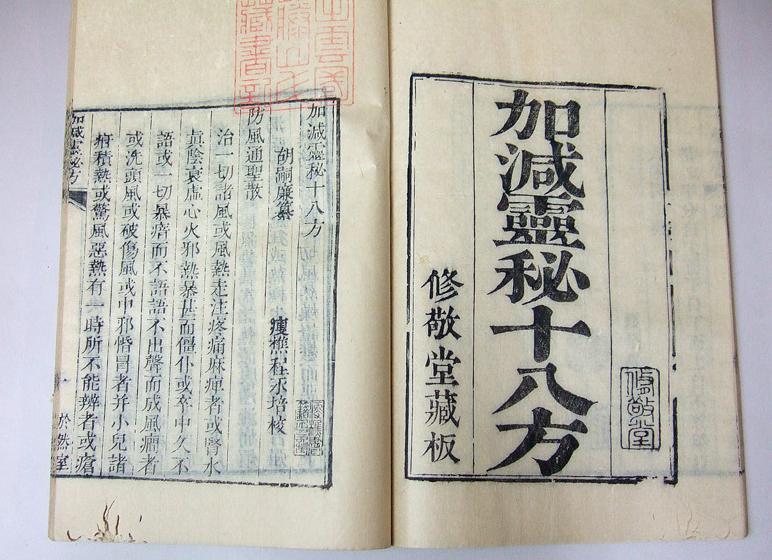 加減靈秘十八方
修敬堂藏板
修敬堂
加減靈秘十八方
胡嗣廉纂
瘦樵程永培校
防風通聖散
治一切諸風或風熱走注疼痛麻痺者或腎水
眞陰衰虛心火邪熱暴甚而僵仆或卒中久不
語或一切暴瘖而不語語不出聲而成風癎者
或洗頭風或破傷風或中邪㑥冒者并小兒諸
疳積熱或驚風惡熱有一時所不能辨者或瘡
加減靈秘方
於然室
藏書